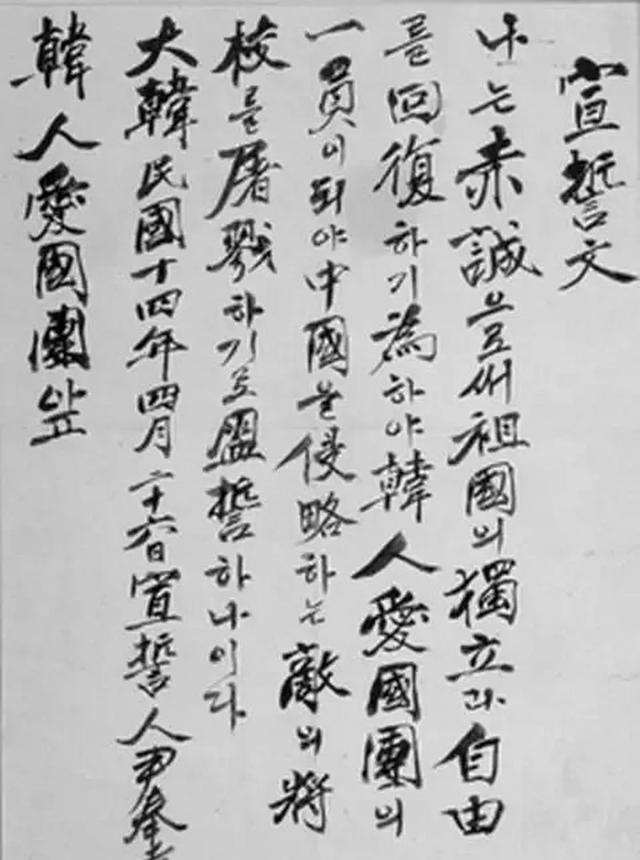 宣誓文
나는赤誠으로써祖國의獨立과自由
를回復하기爲하야韓人愛國團의
一員이되야中國을侵略하는敵의將
校를屠戮하기로盟誓하나이다
大韓民國十四年四月二十六日宣誓人尹奉
韓人愛國團앞